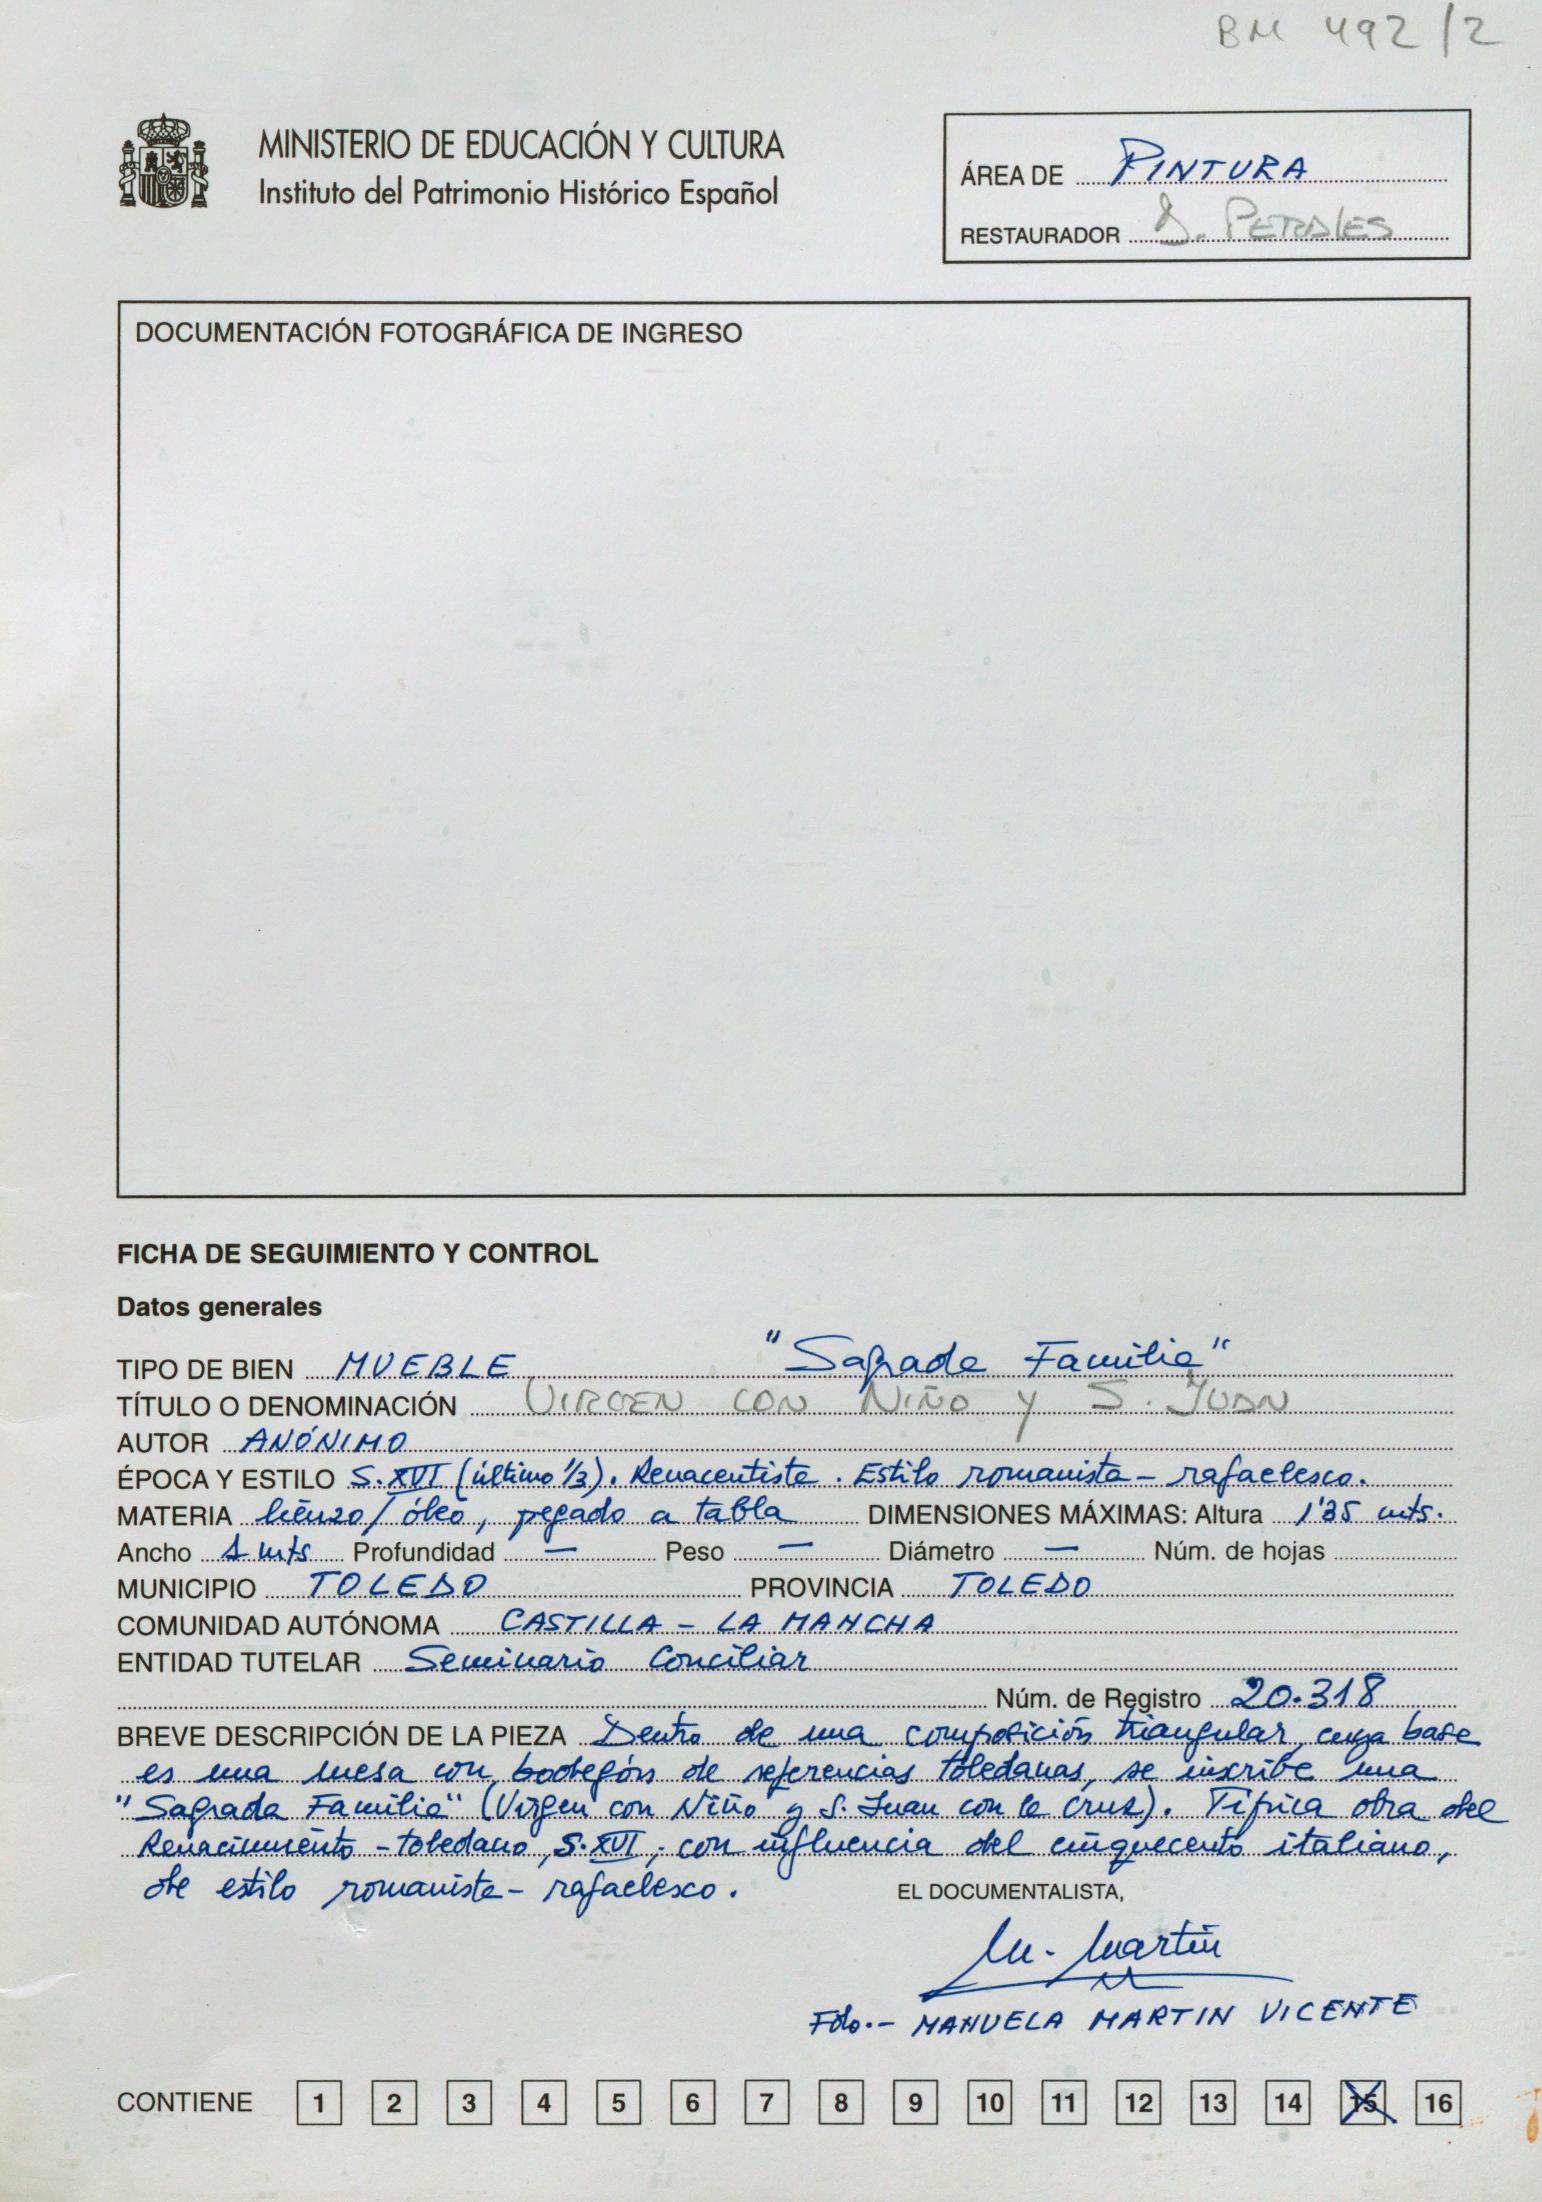 BM 492/2
MINISTERIO DE EDUCACIÓN Y CULTURA
Instituto del Patrimonio Histórico Español
ÁREA DE PINTURA
RESTAURADOR D. PERALES
DOCUMENTACIÓN FOTOGRÁFICA DE INGRESO
FICHA DE SEGUIMIENTO Y CONTROL
Datos generales
"Sagrada Familia"
TIPO DE BIEN MUEBLE
TÍTULO O DENOMINACIÓN VIRGEN CON NIÑO Y S. JUAN
AUTOR ANÓNIMO
ÉPOCA Y ESTILO S. XVI (último 1/3). Renacentista. Estilo romanista - rafaelesco.
MATERIA lienzo / óleo, pegado a tabla DIMENSIONES MÁXIMAS: Altura 1'35 mts.
Ancho 1 mts Profundidad — Peso — Diámetro — Núm. de hojas
MUNICIPIO TOLEDO PROVINCIA TOLEDO
COMUNIDAD AUTÓNOMA CASTILLA - LA MANCHA
ENTIDAD TUTELAR Seminario Conciliar
Núm. de Registro 20.318
BREVE DESCRIPCIÓN DE LA PIEZA Dentro de una composición triangular, cuya base
es una mesa con bodegón de referencias toledanas, se inscribe una
"Sagrada Familia" (Virgen con Niño y S. Juan con la Cruz). Típica obra del
Renacimiento - toledano, S. XVI, con influencia del cinquecento italiano,
de estilo romanista - rafaelesco.
EL DOCUMENTALISTA,
M. Martin
Fdo.- MANUELA MARTIN VICENTE
CONTIENE 1 2 3 4 5 6 7 8 9 10 11 12 13 14 15 16